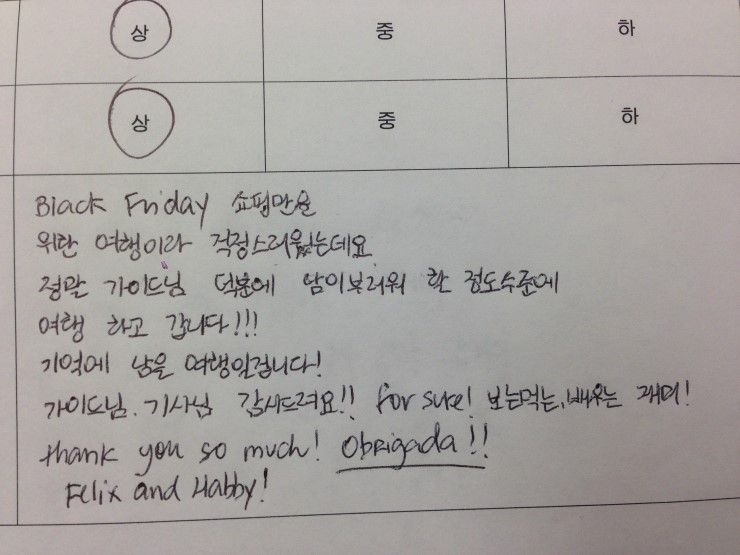 상 중 하
상 중 하
Black Friday 쇼핑만을
위한 여행이라 걱정스러웠는데요
정말 가이드님 덕분에 남이부러워 할 정도수준에
여행 하고 갑니다!!!
기억에 남을 여행일겁니다!
가이드님. 기사님 감사드려요!! for sure! 보는먹는, 배우는 재미!
thank you so much! Obrigada!!
Felix and Habby!